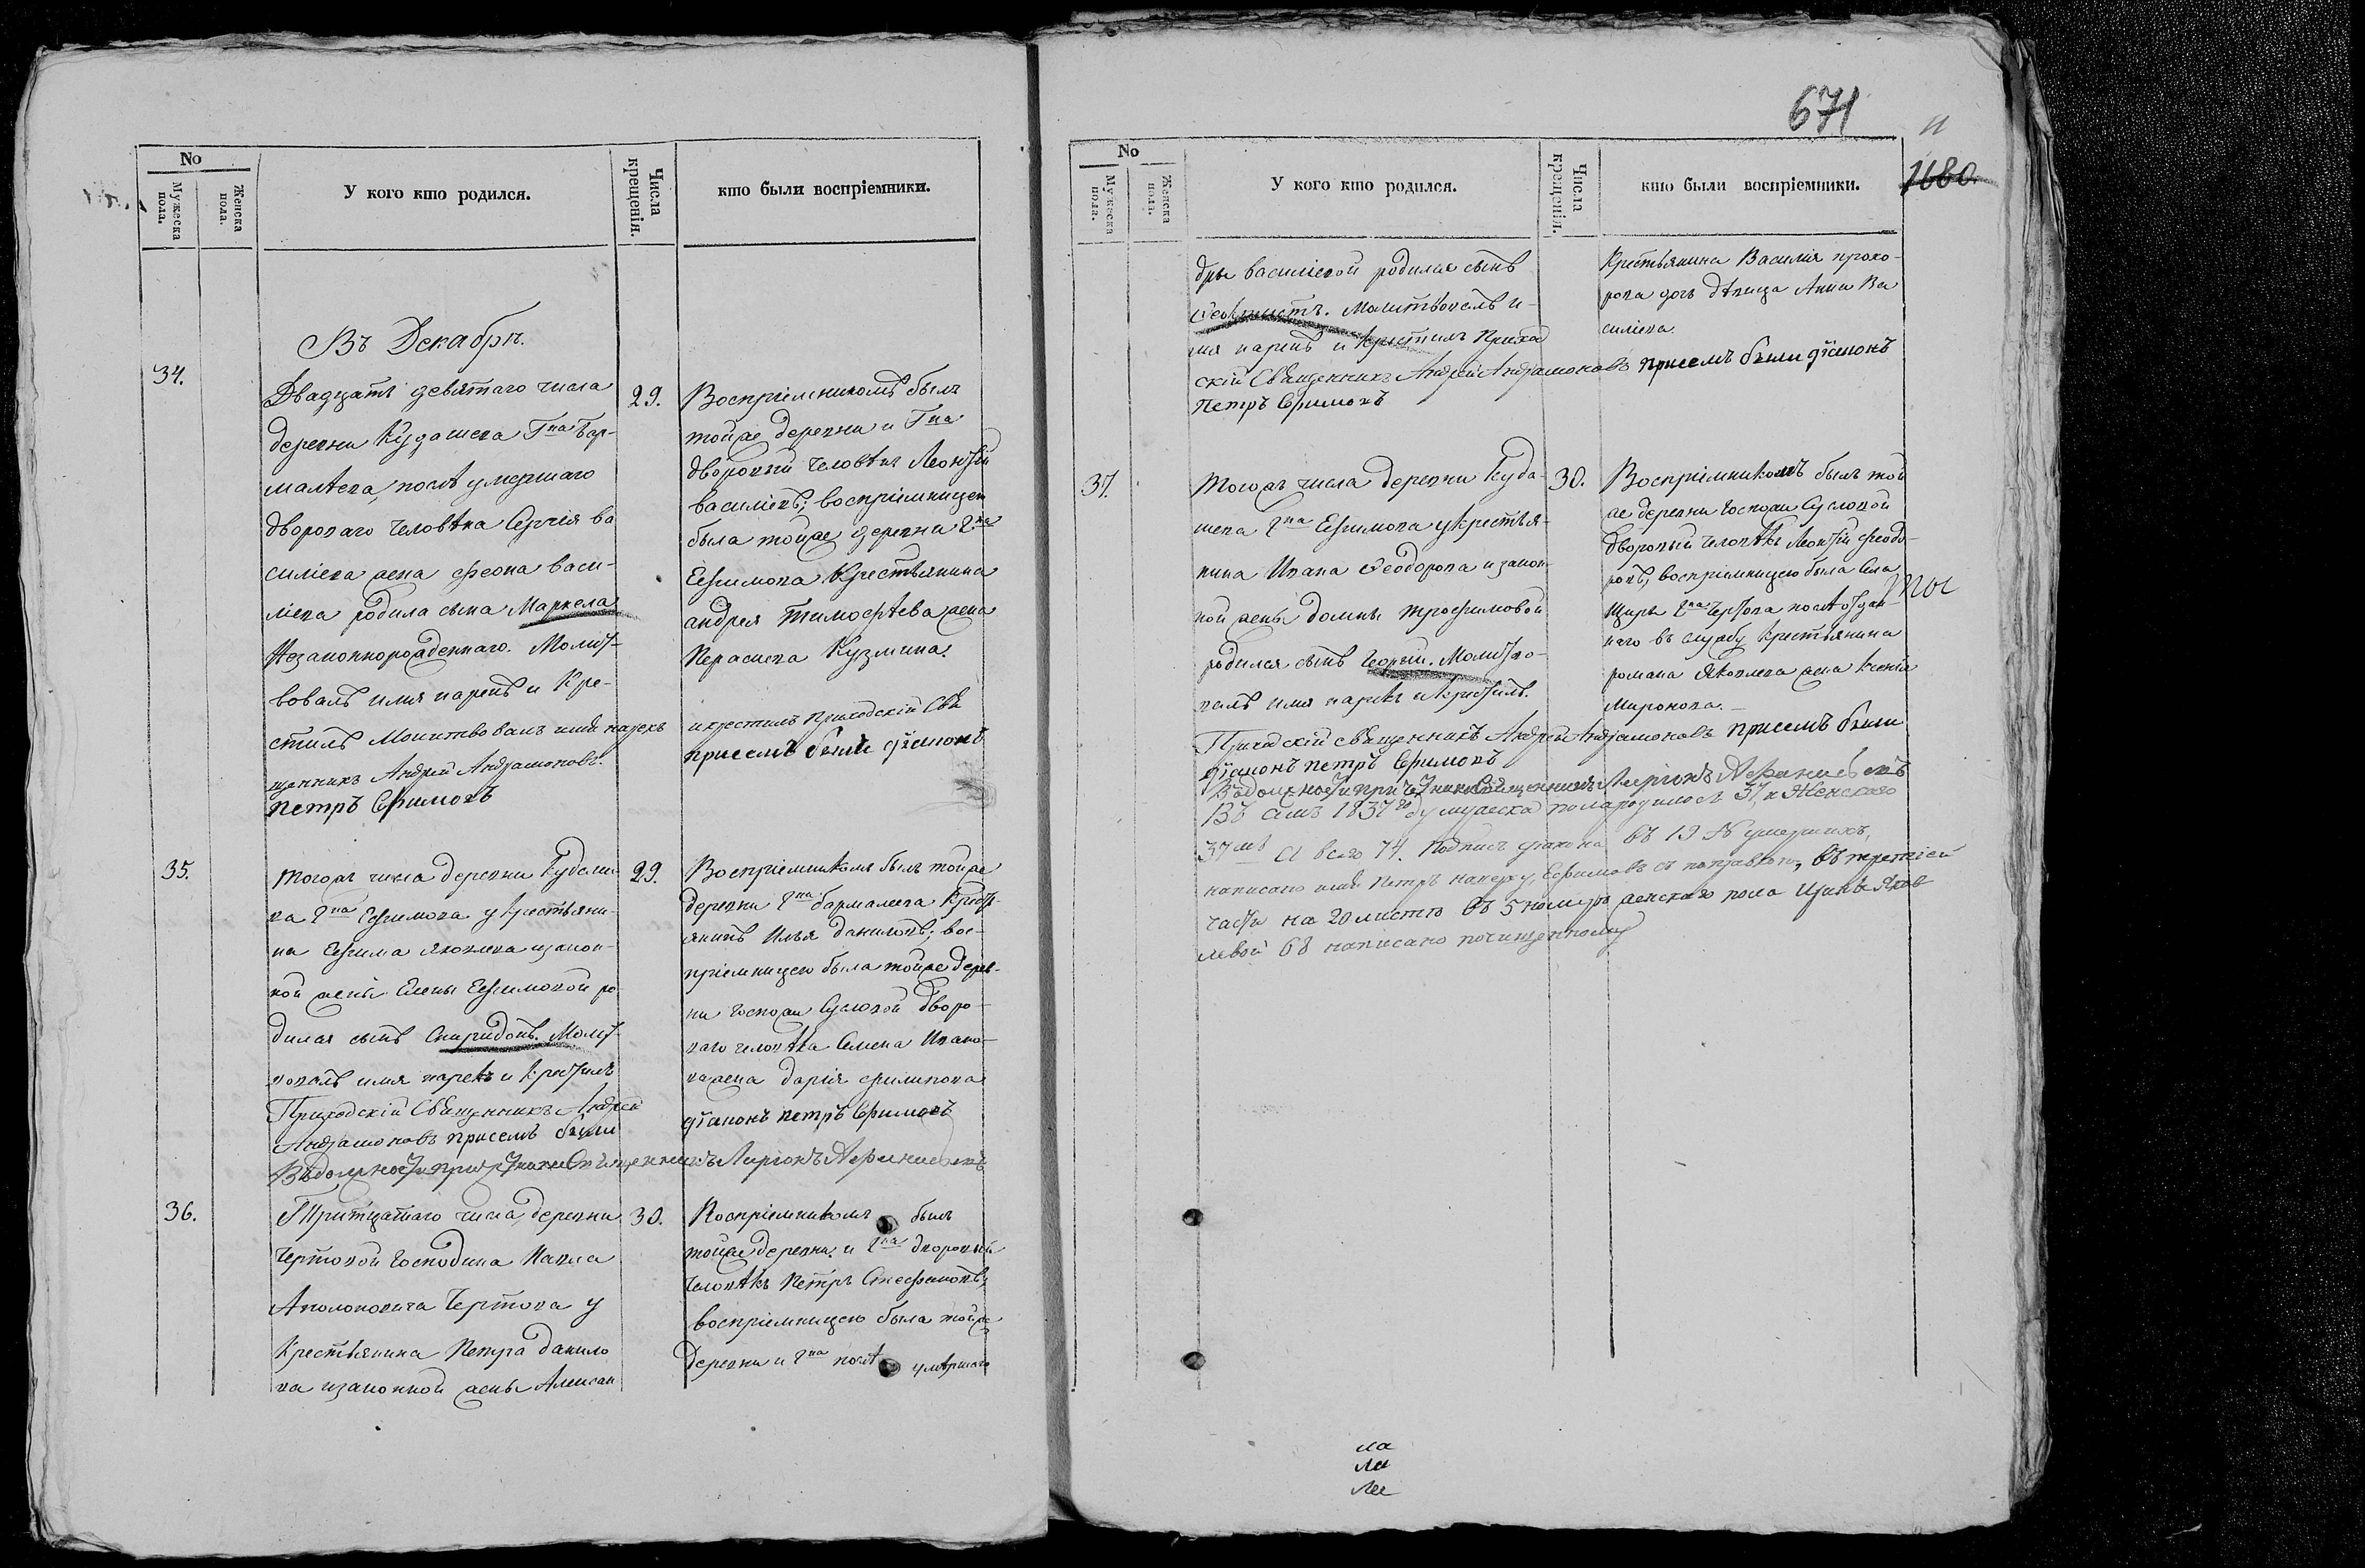 No
Мужеска пола.
Женска пола.
У кого кто родился.
Числа крещенія.
кто были воспріемники.
Въ Декабрѣ.
34.
Двадцать девятаго числа
деревни Кудашева Гна Бар-
малѣева, послѣ умершаго
двороваго человѣка Сергія ва
силіева жена Феона васи-
ліева родила сына Маркела
Незаконнорожденнаго. Молит-
вовалъ имя нарекъ и кре-
стилъ Молитвовалъ имя нарекъ
щенникъ Андрей Андрамоновъ.
Петръ Ефимовъ
29.
Воспріемникомъ былъ
тойже деревни и Гна
дворовый человѣкъ Леонтій
василіевъ; воспріемницею
была тойже деревни Гна
Ефимова Крестьянина
андрея Тимофѣева жена
Параскева Кузмина.
и крестилъ Приходскій Свя
присемъ были діаконъ
35.
тогожъ числа деревни Кудаше
ва Гна Ефимова у крестьяни-
на Ефима Яковлева изакон-
ной жены Елены Ефимовой ро
дился сынъ Спиридонъ. Молит-
вовалъ имя нарекъ и крестилъ
Приходскій Священникъ Андрей
Андрамоновъ присемъ были
29.
Воспріемникомъ былъ тойже
деревни Гна бармалеева Крест-
янинъ Илья даниловъ; вос-
пріемницею была тойже дерев-
ни госпожи Сусловой дворо-
ваго человѣка Семена Ивано-
ва жена дарія филипова
діаконъ петръ Ефимовъ
Въдолжности причетника Священникъ Ларіонъ Афанасьевъ
36.
Тритцатаго числа, деревни
Чертовой Господина Павла
Аполоновича Чертова у
Крестьянина Петра данило
ва изаконной жены Алексан
30.
Воспріемникомъ былъ
тойже деревни и Гна дворовый
человѣкъ Петръ Стефановъ;
воспріемницею была тойже
деревни и Гна послѣ умѣршаго
671
1680.
No
Мужеска пола.
Женска пола.
У кого кто родился.
Числа крещенія.
кто были воспріемники.
дры василіевой родился сынъ
Феоктистъ. Молитвовалъ и-
мя нарекъ и Крестилъ Прихо
скій Священникъ Андрей Андрамоновъ присемъ были діаконъ
Петръ Ефимовъ
Крестьянина Василія прохо-
рова дочь дѣвица Анна Ва
силіева.
37.
тогожъ числа деревни Куда-
шева Гна Ефимова укрестья-
нина Ивана Феодорова изакон
ной жены домны трофимовой
родился сынъ Георгій. Молитво-
валъ имя нарекъ и крестилъ.
30.
Воспріемникомъ былъ той
же деревни Госпожи Сусловой
дворовый человѣкъ Леонтій Феодо-
ровъ, воспріемницею была Села
Щиры Гна Чертова послѣ отдан-
наго въ службу Крестьянина
романа Яковлева жена Ксенія
Миронова.
Приходскій священникъ Андрей Андрамоновъ присемъ были
діаконъ петръ Ефимовъ
Въдолжности причетника Священникъ Ларіонъ Афанасьевъ
Въ семъ 1837 году мужеска пола родилось 37, и Женскаго
37мъ А всего 74. Подпись діакона въ 19 № умершихъ,
написано имя Петръ наверху, Ефимовъ съ поправкою, въ третіей
части на 20 листѣ въ 5 номерѣ женскаго пола
левой 68 написано почищенному
ла
ли
ле